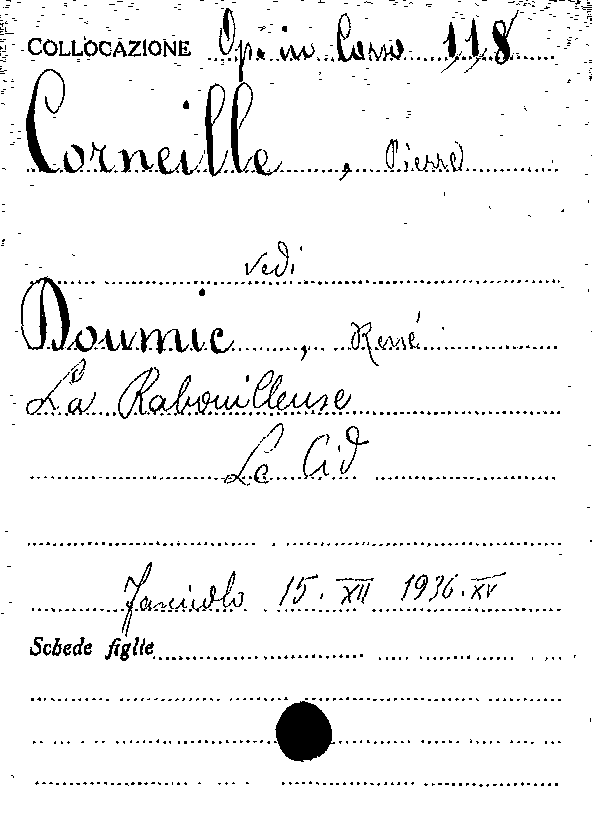 COLLOCAZIONE Op. in Corso 118
Corneille, Pierre
vedi
Doumic, René
La Rabouilleuse
Le Cid
Fascicolo 15. XII 1936. XV
Schede figlie